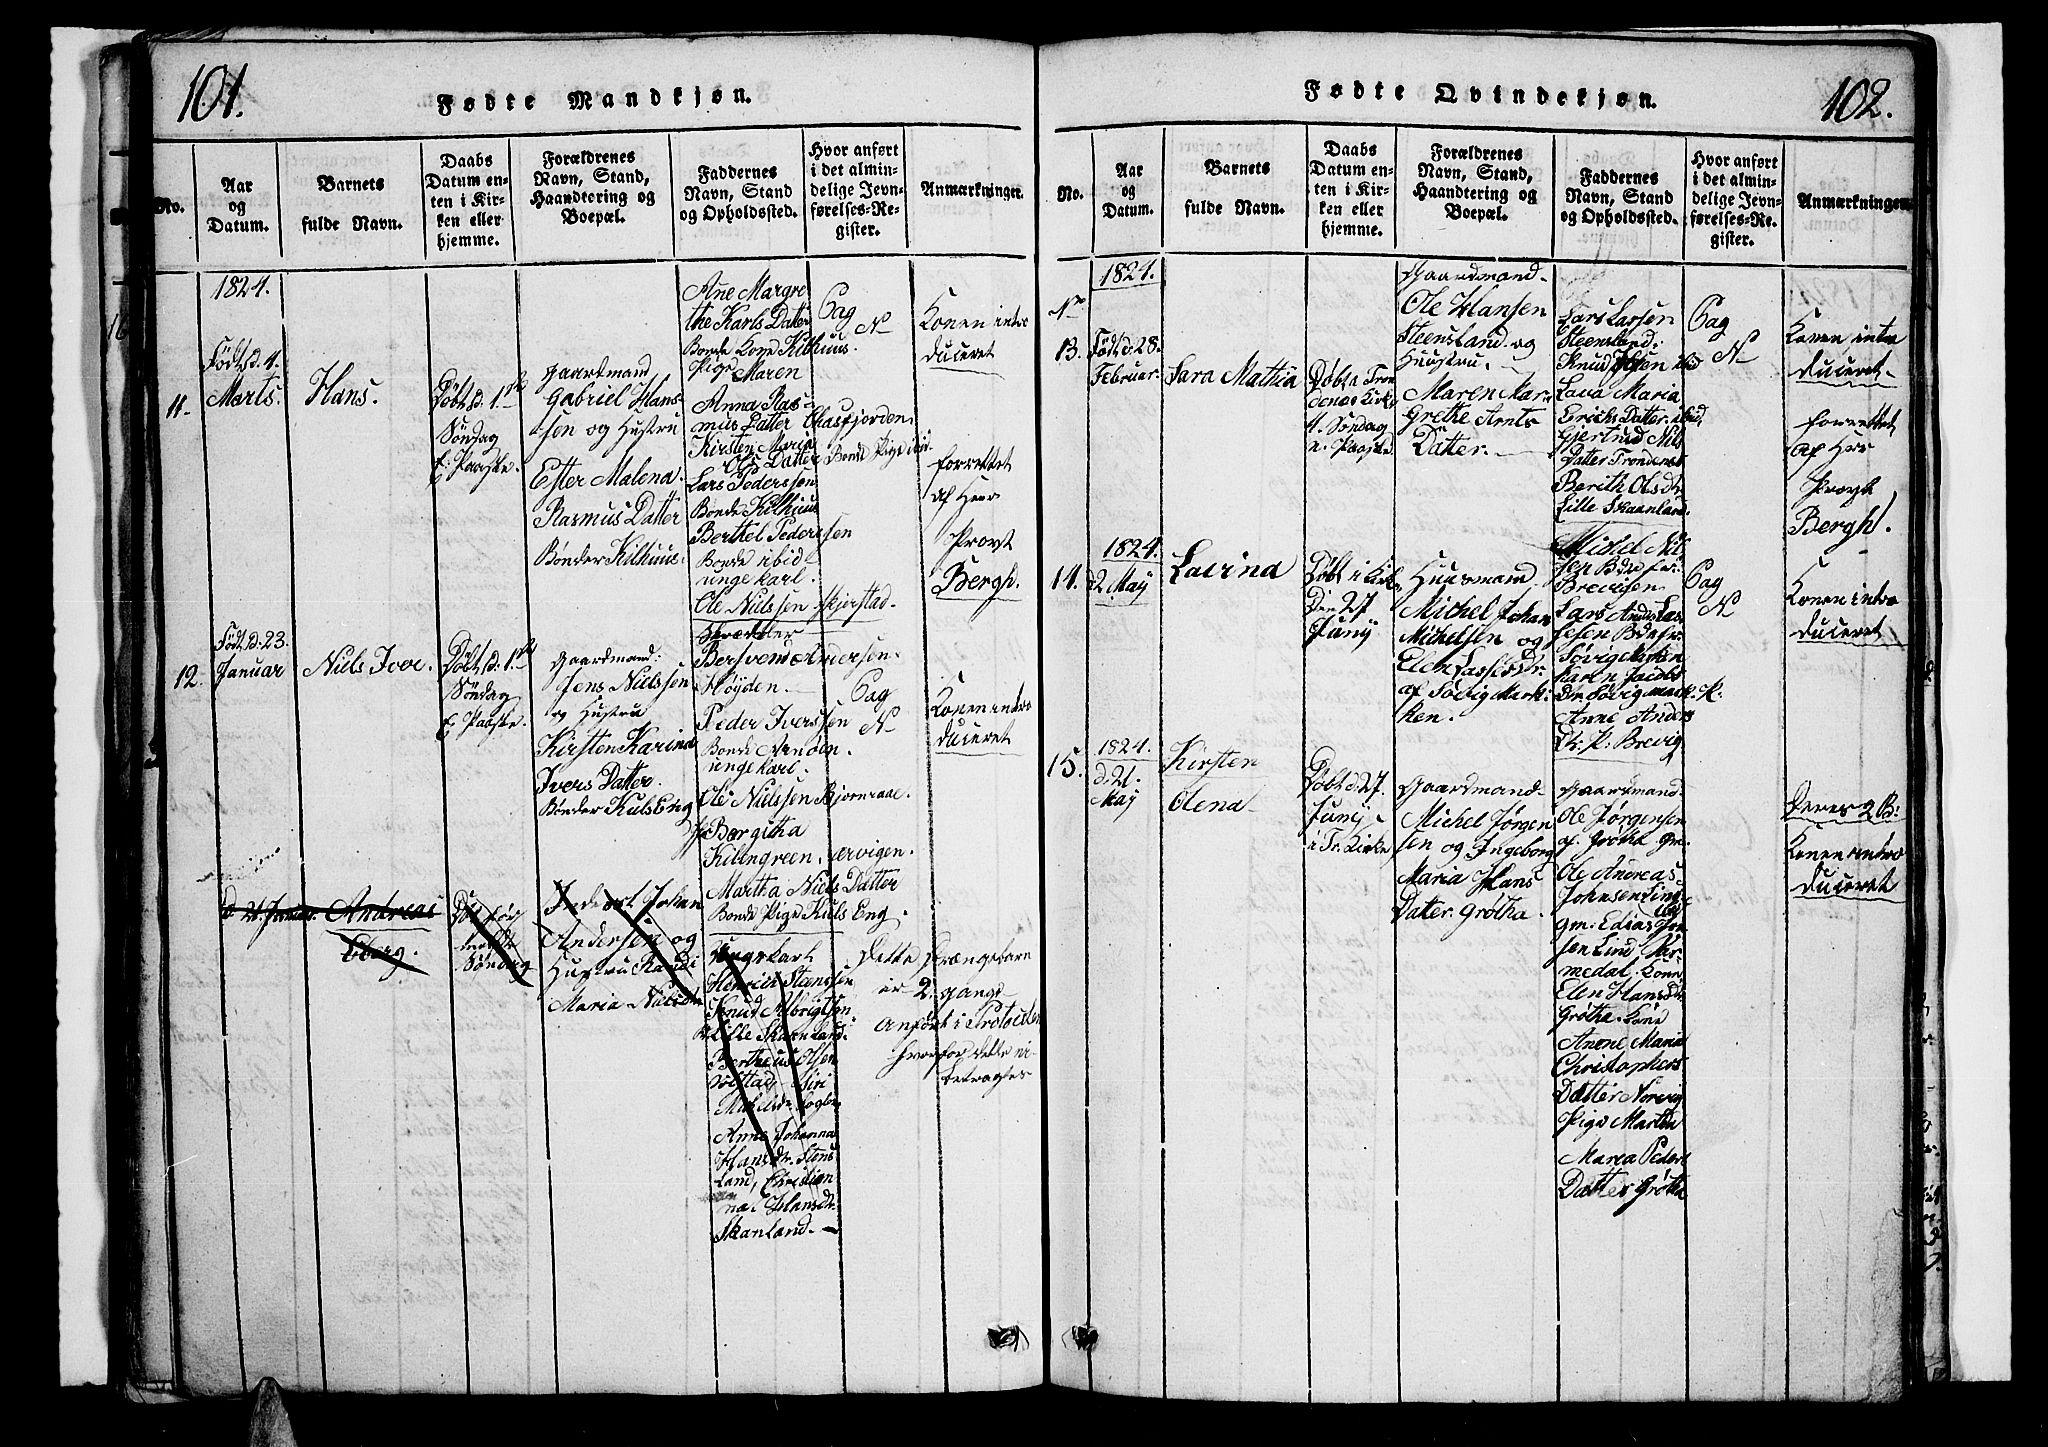 101.
Fødte Mandkjøn.
No.
Aar
og
Datum.
Barnets
fulde Navn.
Daabs
Datum en-
ten i Kir-
ken eller
hjemme.
Forældrenes
Navn, Stand,
Haandtering og
Boepæl.
Faddernes
Navn, Stand
og Opholdssted.
Hvor anført
i det almin-
delige Jevn-
førelses-Re-
gister.
Anmærkninger.
11.
1824.
Født d. 4.
Marts.
Hans.
Døbt d. 1ste
Søndag
E. Paaske.
Gaardmand
Gabriel Hans-
søn og Hustru
Ester Malena
Rasmus Datter
Bønder Kilhuus.
Ane Margre
the Karls Datter
Bonde Kone Kilhuus.
Pige Maren
Anna Ras-
mus Datter
Kirsten Maria
Ols Datter
Bonde Pige ibid.
Lars Pederssen
Bonde Kilhuus
Berthel Pederssen
Bonde ibid
unge karl.
Ole Nielssen
Pag
N
Konen intro
duceret
forrettet
af Herr
Provst
Bergh.
12.
Født d. 23.
Januar
Niels Iver.
Døbt d. 1ste
Søndag
E. Paaske
Gaardmand:
Jens Nielssen
og Hustru
Kirsten Karina
Ivers Datter.
Bønder Kuls Eng
Skrædder
Bersvend Andersen
Høyden.
Peder Iverssen
Bonde
unge karl.
Ole Nielssen
Bergitha
Kilengreen.
Martha Niels Datter
Bonde Pige Kuls Eng.
Pag
N
Konen intro
duceret
d. 21. Januar.
Andreas
Eberg.
Døbt
Søndag
Johan
Andersen og
Hustru Randi
Maria Nielsdr
Ungekarl
Henrich
Knud Albrigtsen
Lille Skaanland.
Anne Johanna
Hansdr. Stens
land, Christian
na Hansdr.
Skanland.
Dette Drængebarn
er 2. gange
anført i Protocolen
hvorfor dette ei
betragtes
102.
Fødte Qvindekjøn.
No.
Aar
og
Datum.
Barnets
fulde Navn.
Daabs
Datum en-
ten i Kir-
ken eller
hjemme.
Forældrenes
Navn, Stand,
Haandtering og
Boepæl.
Faddernes
Navn, Stand
og Opholdssted.
Hvor anført
i det almin-
delige Jevn-
førelses-Re-
gister.
Anmærkninger.
13.
1824.
Født d: 28.
Februar.
Sara Mathia
Døbt i Tron
denæs Kirke
4. Søndag
e. Paaske.
Gaardmand
Ole Hansen
Steensland og
Huustru.
Maren Mar-
Grethe Arnts
Datter.
Lars Larsen
Steensland.
Knud Olsen ibid
Lava Maria
Erichs Datter ibid.
Gjertrud Nils
Datter Trondenæs
Berith Olsdtr
Lille Skaanland.
Pag
N
Konen intro
duceret
forrettet
af Hrr
Provst
Bergh.
14.
1824.
d 2 May
Lavina
Døbt i Kirken
Den 27
Junij
Huusmand
Michel Johan
Michelsen og
Elen Lassesdr.
af Sövig Mark-
ken.
Michel Nil
sen
Brevigen.
Lars Anders Las
sesen
Sövig Marken
Karen Jacobs
Dr. Sövig mark.
Anne Anders
Dr. K: Brevig
Pag
N
Konen intro
duceret
15.
1824.
d. 21.
May
Kirsten
Olena
Døbt d. 27.
Junij
i Tr. Kirke
Gaardmand
Michel Jørgen
sen og Ingeborg
Maria Hans
Datter. Grötha.
Gaardmand
Ole Jørgensen
af Grötha Gm.
Ole Andreas
Johnsen Lind
Gm: Edias Jon
sen Lind
medal. Kone
Elen Hansdr
Grötha. Kone
Anne Maria
Christophers
Datter Norvig
Pige Martha
Maria Peders
Datter Grötha
Deres 2 B:
Konen intro
duceret